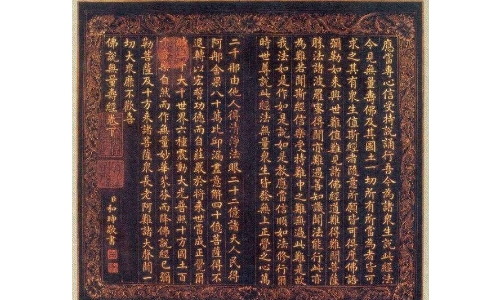 應當專心信受持誦說行吾今為諸衆生說此經法
令見無量壽佛及其國土一切所有所當為者皆可
求之其有衆生值斯經者隨意所願皆可得度佛語
彌勒如來興世難值難見諸佛經道難得難聞菩薩
勝法諸波羅蜜得聞亦難遇善知識聞法能行此亦
為難若聞斯經信樂受持難中之難無過此難是故
我法如是作如是說如是教應當信順如法修行爾
時世尊說此經法無量衆生皆發無上正覺之心萬
二千那由他人得清淨法眼二十二億諸天人民得
阿那含果八十萬比丘漏盡意解四十億菩薩得不
退轉以弘誓功德而自莊嚴於將來世當成正覺爾
時大千世界六種震動大光普照十方國土百
自然而作無量妙華芬芬而降佛說經已彌
勒菩薩及十方來諸菩薩衆長老阿難諸大聲聞一
切大衆靡不歡喜
佛說無量壽經卷下
臣和珅敬書